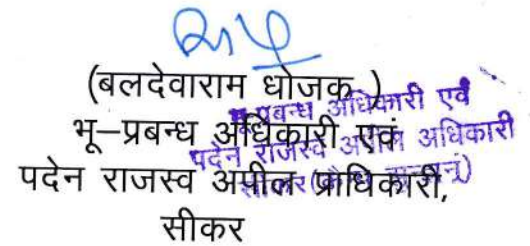 (बलदेवाराम धोजक )
भू–प्रबन्ध अधिकारी एवं
पदेन राजस्व अपील प्राधिकारी,
सीकर
प्रबन्ध अधिकारी एवं
पदेन राजस्व अपील अधिकारी
सीकर